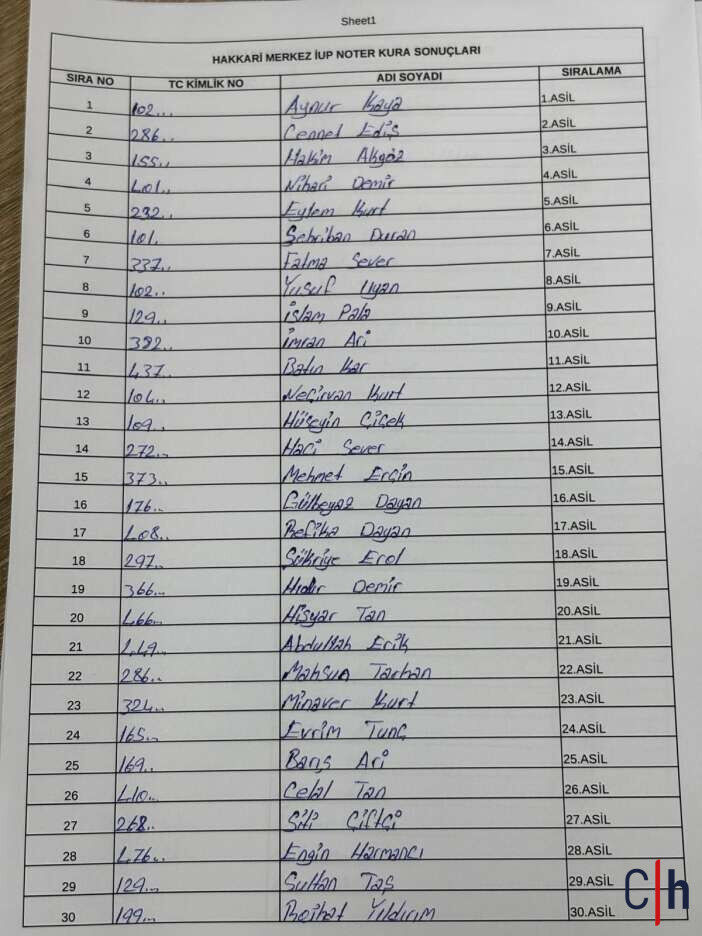 Sheet1
HAKKARİ MERKEZ İUP NOTER KURA SONUÇLARI
SIRA NO TC KİMLİK NO ADI SOYADI SIRALAMA
1 102... Aynur Kaya 1.ASİL
2 286... Cennet Ediş 2.ASİL
3 155.. Hakim Akgöz 3.ASİL
4 401.. Nihari Demir 4.ASİL
5 232.. Eylem Kurt 5.ASİL
6 101. Şehriban Duran 6.ASİL
7 337.. Fatma Sever 7.ASİL
8 102.. Yusuf Uyan 8.ASİL
9 129.. İslam Pala 9.ASİL
10 382.. İmran Ari 10.ASİL
11 437.. Batın Kar 11.ASİL
12 104.. Neçirvan Kurt 12.ASİL
13 109.. Hüseyin Çiçek 13.ASİL
14 272... Haci Sever 14.ASİL
15 373.. Mehmet Erçin 15.ASİL
16 176... Gülbeyaz Dayan 16.ASİL
17 408.. Refika Dayan 17.ASİL
18 297.. Şükriye Erol 18.ASİL
19 366... Hıdır Demir 19.ASİL
20 466... Hişyar Tan 20.ASİL
21 449... Abdullah Erik 21.ASİL
22 286.. Mahsun Tarhan 22.ASİL
23 324... Minaver Kurt 23.ASİL
24 165... Evrim Tunç 24.ASİL
25 169.. Barış Ari 25.ASİL
26 410... Celal Tan 26.ASİL
27 268.. Siti Çiftçi 27.ASİL
28 476... Engin Harmancı 28.ASİL
29 129... Sultan Taş 29.ASİL
30 199... Rojhat Yıldırım 30.ASİL
C|h